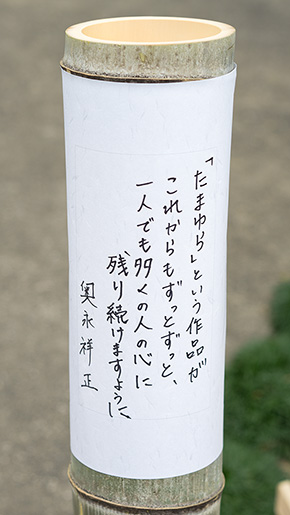 「たまゆら」という作品が
これからもずっとずっと、
一人でも多くの人の心に
残り続けますように
奥永祥正